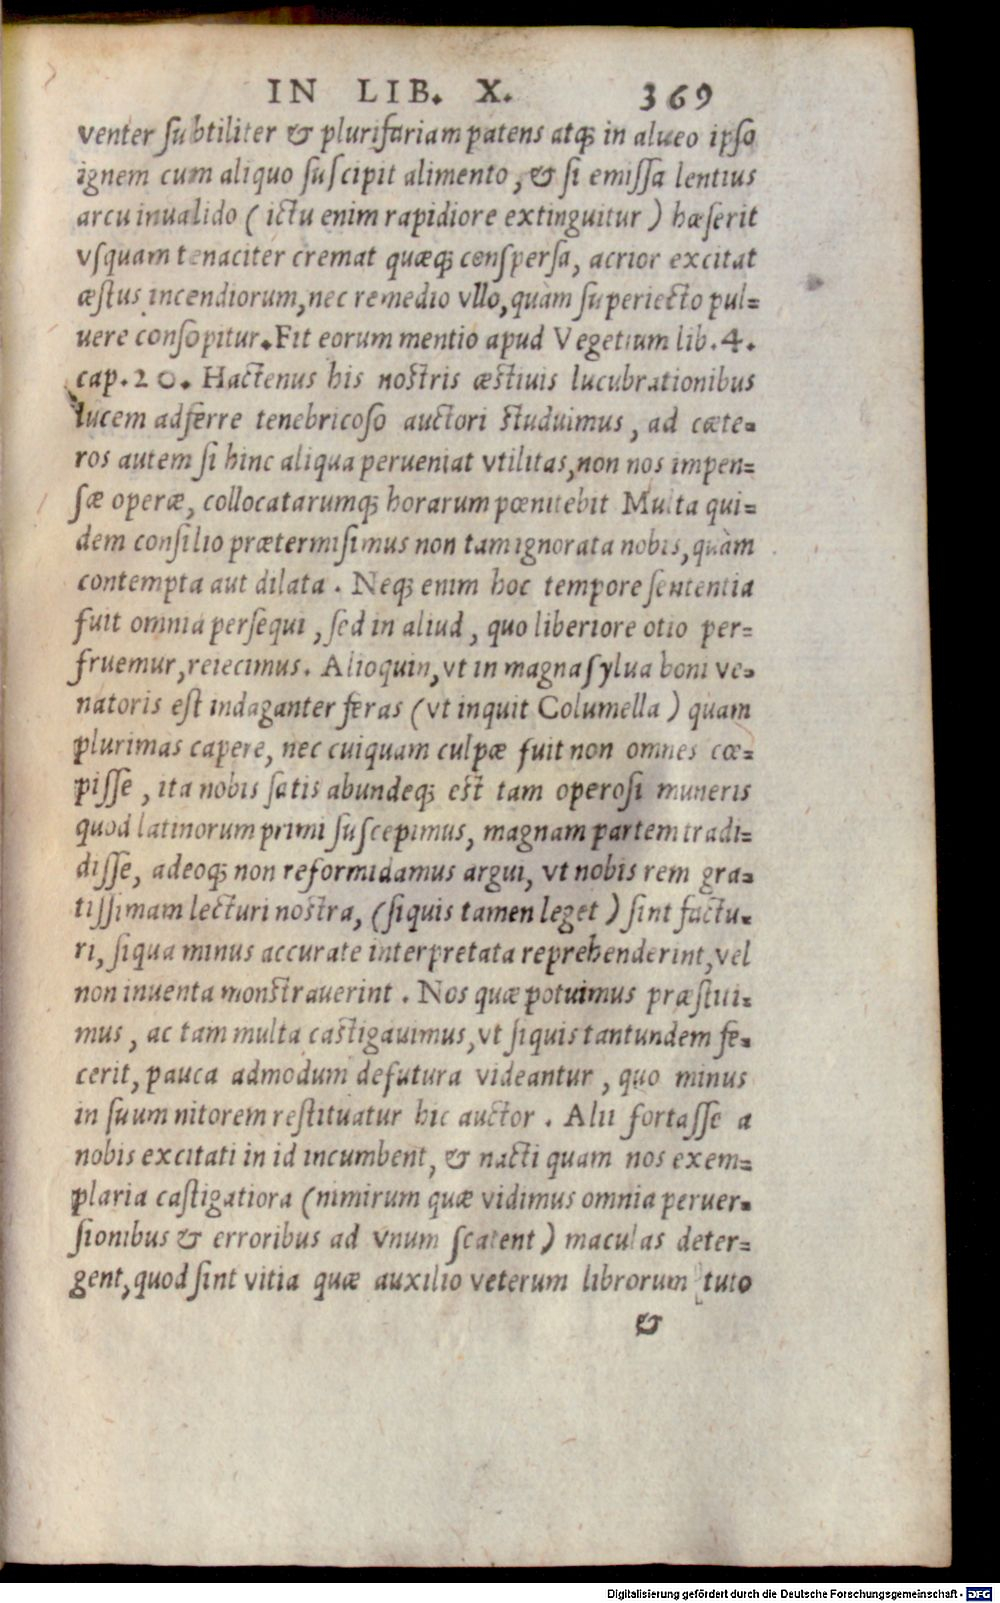 IN LIB. X. 369
venter ſubtiliter & plurifariam patens atq; in alueo ipſo
ignem cum aliquo ſuſcipit alimento, & ſi emiſſa lentius
arcu inualido ( ictu enim rapidiore extinguitur ) hæſerit
vſquam tenaciter cremat quæq; conſperſa, acrior excitat
æſtus incendiorum, nec remedio vllo, quàm ſuperiecto pul=
uere conſopitur. Fit eorum mentio apud Vegetium lib. 4.
cap. 20. Hactenus his noſtris æſtiuis lucubrationibus
lucem adferre tenebricoſo auctori ſtuduimus, ad cæte=
ros autem ſi hinc aliqua perueniat vtilitas, non nos impen=
ſæ operæ, collocatarumq; horarum pœnitebit Multa qui=
dem conſilio prætermiſimus non tam ignorata nobis, quàm
contempta aut dilata. Neq; enim hoc tempore ſententia
fuit omnia perſequi, ſed in aliud, quo liberiore otio per=
fruemur, reiecimus. Alioquin, vt in magna ſylua boni ve=
natoris eſt indaganter feras (vt inquit Columella ) quam
plurimas capere, nec cuiquam culpæ fuit non omnes cœ=
piſſe, ita nobis ſatis abundeq; eſt tam operoſi muneris
quod latinorum primi ſuſcepimus, magnam partem tradi=
diſſe, adeoq; non reformidamus argui, vt nobis rem gra=
tiſſimam lecturi noſtra, (ſiquis tamen leget ) ſint factu=
ri, ſiqua minus accurate interpretata reprehenderint, vel
non inuenta monſtrauerint. Nos quæ potuimus præſtui=
mus, ac tam multa caſtigauimus, vt ſiquis tantundem fe=
cerit, pauca admodum defutura videantur, quo minus
in ſuum nitorem reſtituatur hic auctor. Alii fortaſſe a
nobis excitati in id incumbent, & nacti quam nos exem=
plaria caſtigatiora (nimirum quæ vidimus omnia peruer=
ſionibus & erroribus ad vnum ſcatent ) maculas deter=
gent, quod ſint vitia quæ auxilio veterum librorum tuto
&
Digitalisierung gefördert durch die Deutsche Forschungsgemeinschaft - DFG